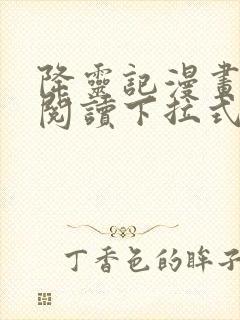 降靈記漫畫
閱讀下拉式
丁香色的眸子